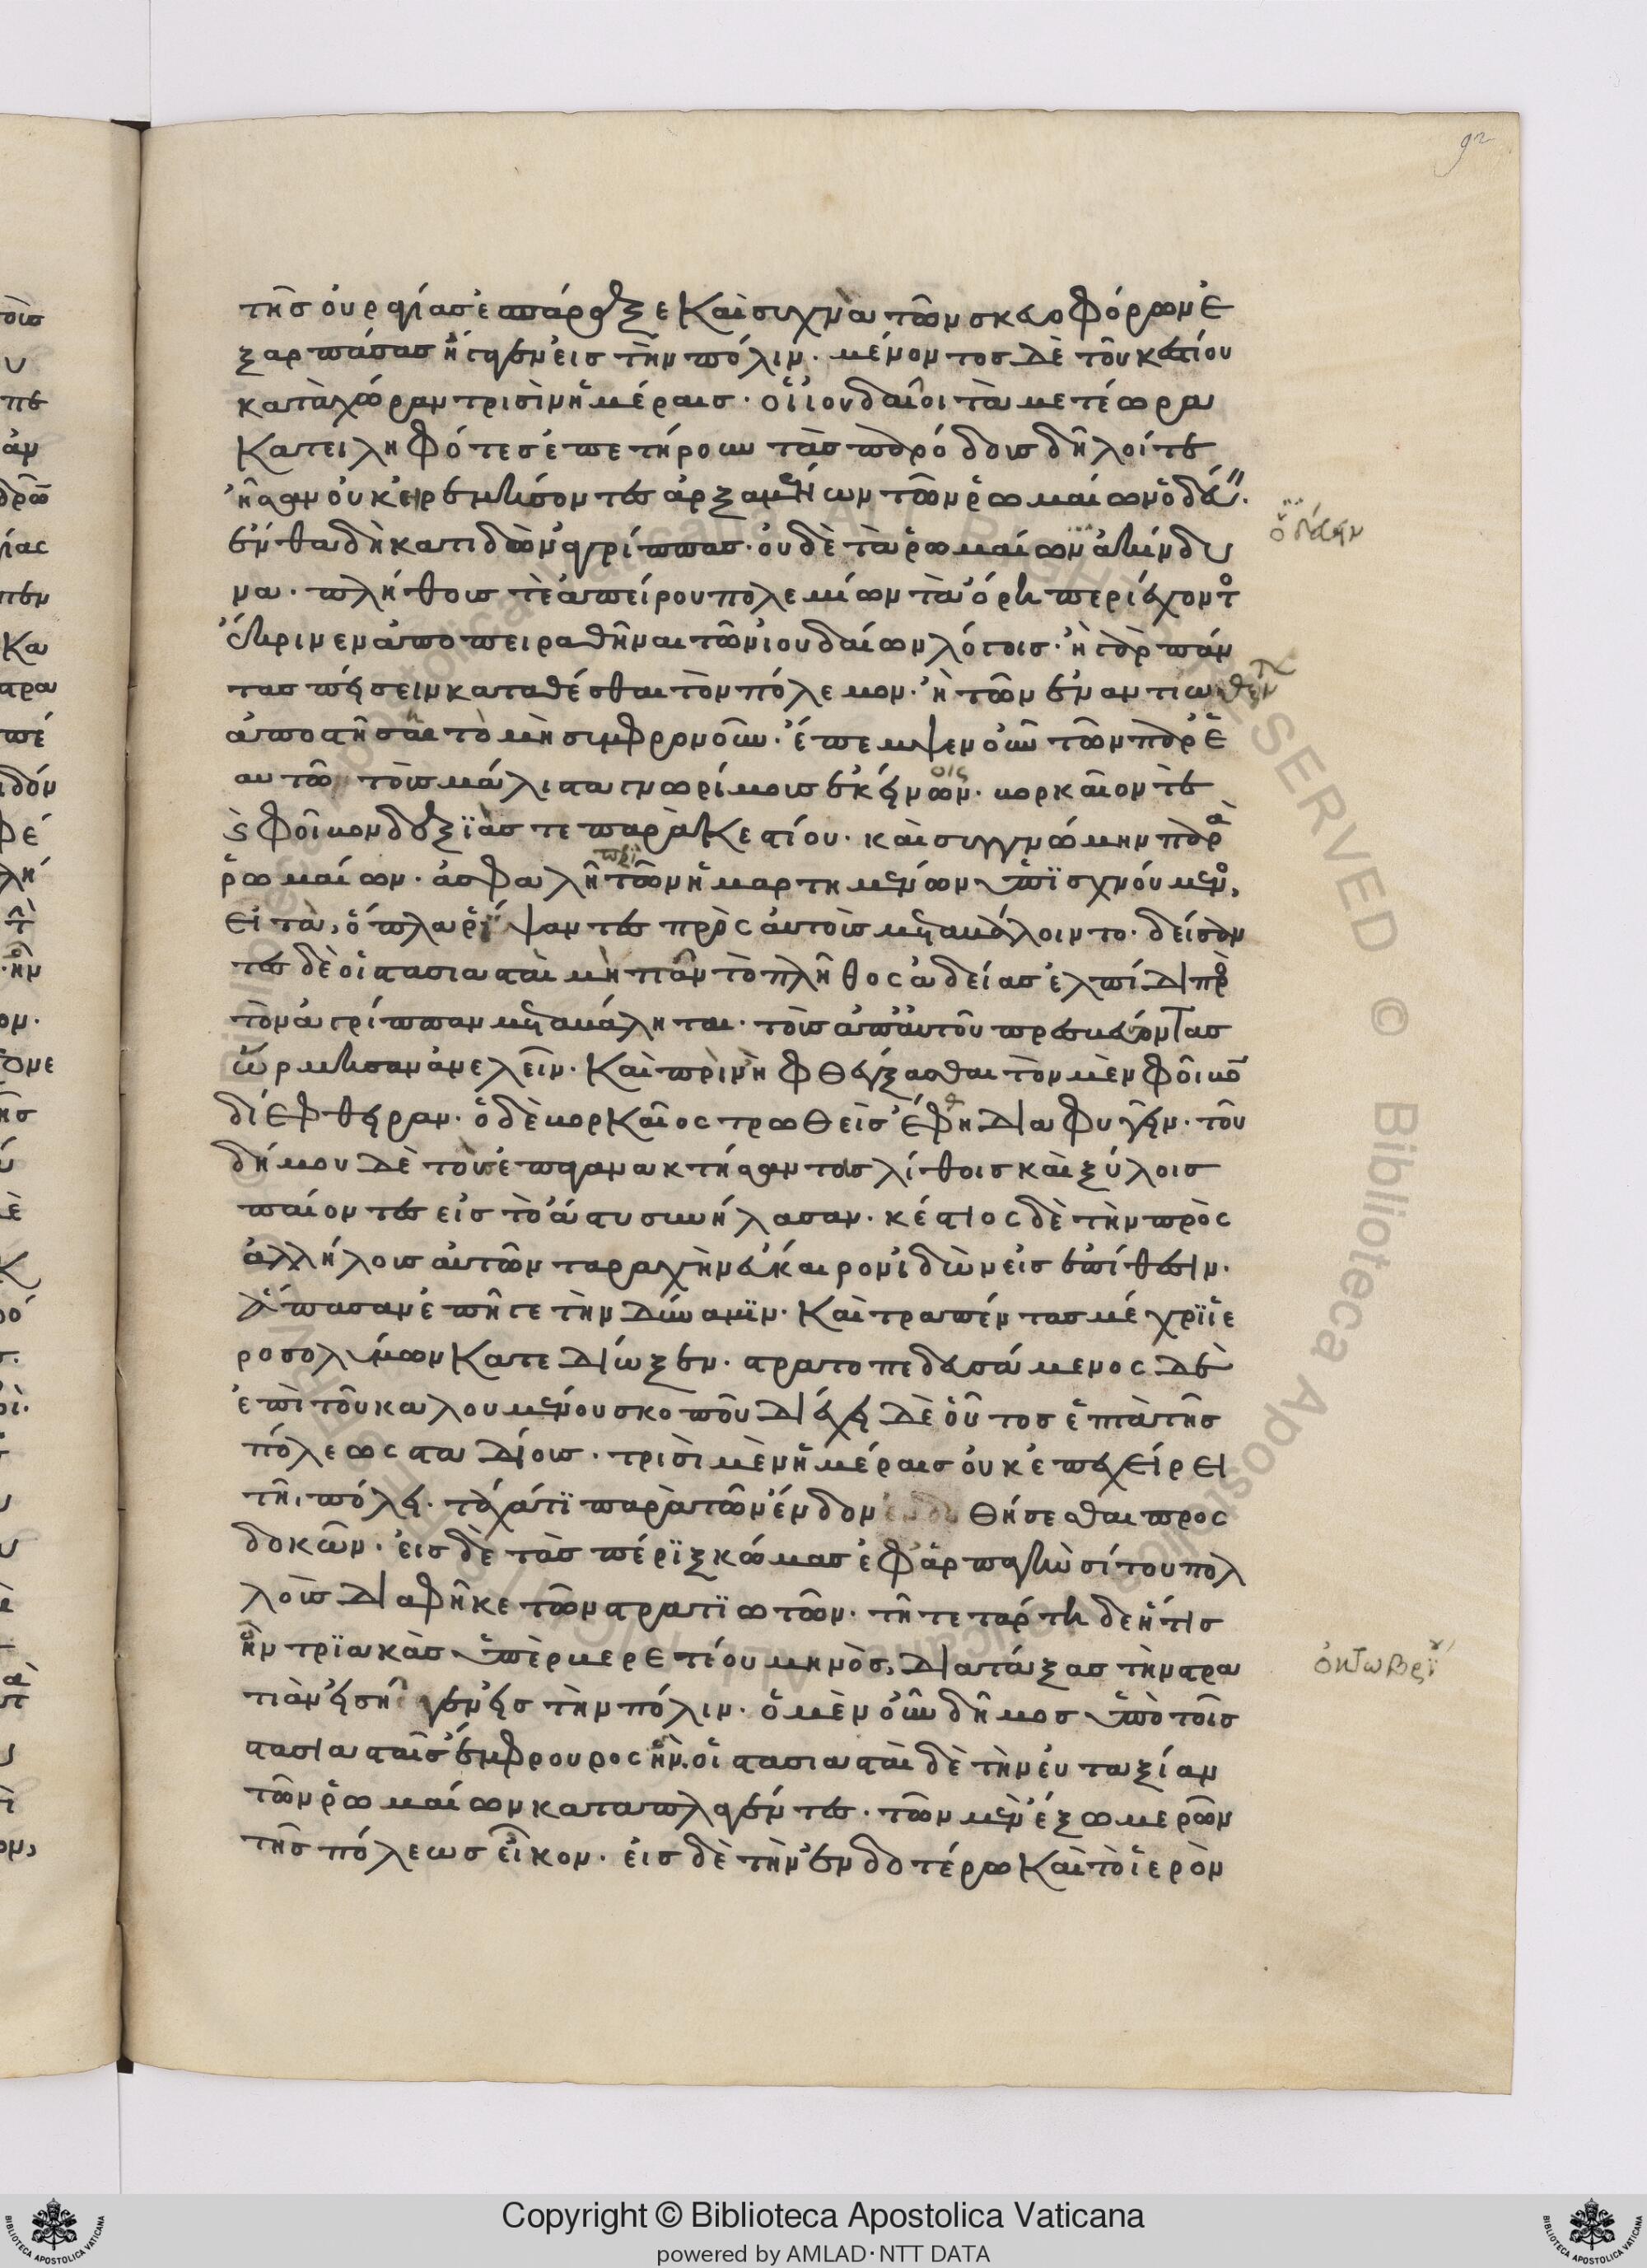 τῆς οὐραγίας ἐσπάραξε καὶ συχνὰ τῶν σκευοφόρων ἐ
ξαρπάσας ἤγαγεν εἰς τὴν πόλιν· μένοντος δὲ τοῦ κεστίου
κατὰ χώραν τρισὶν ἡμέραις· οἱ ἰουδαῖοι τὰ μετέωρα
κατειληφότες ἐπετήρουν τὰς παρόδους δῆλοί τε
ἦσαν οὐκ ἠρεμήσοντες ἀρξαμένων τῶν ῥωμαίων ὁδεύ·
ὁδεύειν
ἔνθα δὴ κατιδὼν ἀγρίππας· οὐδὲ τὰ ῥωμαίων ἀκίνδυ
να· πλήθους τὲ ἀπείρου πολεμίων τὰ ὄρη περιέχοντο
ἔκρινεν ἀποπειραθῆναι τῶν ἰουδαίων λόγοις· ἢ γὰρ πάν
τας πείσειν καταθέσθαι τὸν πόλεμον· ἢ τῶν ἐναντιωθέντ
ἀποστῆσαι τὸ μὴ συμφρονοῦν· ἔπεμψεν οὖν τῶν παρ' ἑ
αυτῶ τοὺς μάλιστα γνωρίμους ἐκείνων οις· κορκαῖον τὲ
καὶ φοῖκον δεξιάς τε παρὰ κεστίου· καὶ συγγνώμην παρὰ
ῥωμαίων· ἀσφαλῆ περὶ τῶν ἡμαρτημένων ὑπισχνούμενο,
εἰ τὰ ὅπλα ῥίψαντες πρὸς αὐτοὺς μεταβάλοιντο· δείσαν
τες δὲ οἱ στασιασταὶ μὴ πᾶν τὸ πλῆθος ἀδείας ἐλπίδι πρὸ
τὸν ἀγρίππαν μεταβάληται· τοὺς ἀπ' αὐτοῦ πρεσβεύοντας
ὥρμησαν ἀνελεῖν· καὶ πρὶν ἢ φθέγξασθαι τὸν μὲν φοῖκο
διέφθειραν· ὁ δὲ κορκαῖος τρωθεὶς ἔφθη διαφυγεῖν· τοῦ
δήμου δὲ τοὺς ἐπαγανακτήσαντας λίθοις καὶ ξύλοις
παίοντες εἰς τὸ ἄστυ συνήλασαν· κέστιος δὲ τὴν πρὸς
ἀλλήλους αὐτῶν ταραχὴν εὔκαιρον ἰδὼν εἰς ἐπίθεσιν·
ἅπασαν ἐπῆγε τὴν δύναμιν· καὶ τραπέντας μέχρι ἱε
ροσολύμων κατεδίωξεν· στρατοπεδευσάμενος δὲ
ἐπὶ τοῦ καλουμένου σκοποῦ διέχει δὲ οὗτος ἑπτὰ τῆς
πόλεως σταδίους· τρισὶ μὲν ἡμέραις οὐκ ἐπεχείρει
τῆι πόλει· τάχα τι παρὰ τῶν ἔνδον ἐνδοθήσεσθαι προς
δοκῶν· εἰς δὲ τὰς πέριξ κώμας ἐφ' ἁρπαγὴν σίτου πολ
λοὺς διαφῆκε τῶν στρατιωτῶν· τῆ τετάρτη δὲ ἥτις
ἦν τριακὰς ὑπερβερετίου μηνὸς, διατάξας τὴν στρα
ὀκτωβρί
τιὰν εἰσῆγεν εἰς τὴν πόλιν· ὁ μὲν οὖν δῆμος ὑπὸ τοῖς
στασιασταῖς ἔμφρουρος ἦν, οἱ στασιασταὶ δὲ τὴν εὐταξίαν
τῶν ῥωμαίων καταπλαγέντες· τῶν μὲν ἔξω μερῶν
τῆς πόλεως εἶκον· εἰς δὲ τὴν ἐνδοτέρω καὶ τὸ ἱερὸν